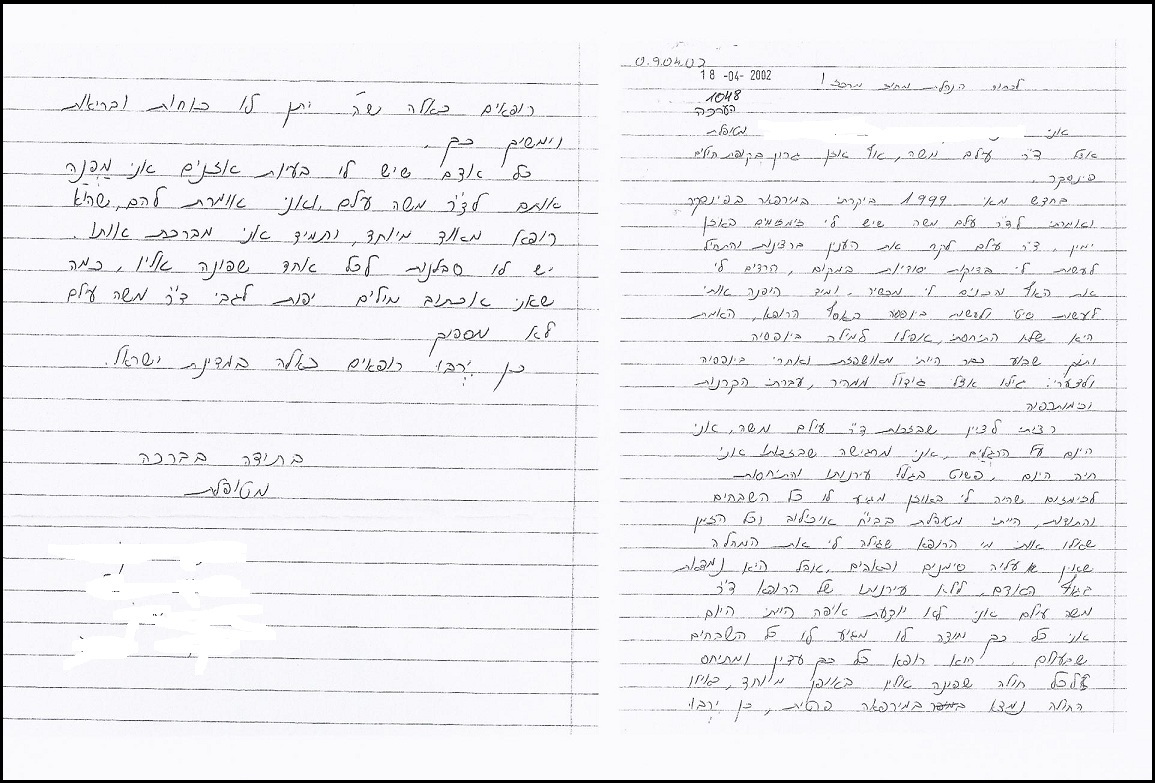 09.04.02
18 -04- 2002
לכבוד הנהלת מחוז מרכז!
1048
הערכה
אני מטופלת
אצל ד"ר עילם משה, אף אוזן גרון בקופת חולים
פינסקר.
בחדש מאי 1999 ביקרתי במירפאה בפינסקר
ואמרתי לד"ר עילם משה שיש לי זימזומים באוזן
ימין, ד"ר עילם לקח את הענין ברצנות והתחיל
לעשות לי בדיקות יסודיות במקום, הרדים לי
את האף מכשיר, ומיד היפנה אותי
לעשות סיטי ולעשות ביופסה באסף הרופא, האמת
היא שלא התיחסתי, אפילו למילה ביופסיה
ותוך שבוע כבר הייתי מאושפזת ואחרי ביופסיה
ולצערי גילו אצלי גידול ממאיר, עברתי הקרנות
וכימותרפיה
רציתי לציין שבזכות ד"ר עילם משה, אני
היום על הרגלים, אני מרגישה שבזכותו אני
חיה היום, פשוט בגלל עירנותו והתיחסות
לזימזום שהיה לי באוזן מגיע לו כל השבחים
והתודות, הייתי מטופלת בבי"ח איכילוב וכל הזמן
שאלו אותי מי הרופא שגילה לי את המחלה
שאין עליה סימנים וכאבים, אבל היא נמצאת
בגוף האדם, ללא עירנותו של הרופא ד"ר
משה עילם אני לא יודעת איפה הייתי היום
אני כל כך מודה לו מגיע לו כל השבחים
שבעולם. הוא רופא כל כך עדין ומתיחס
לכל חולה שפונה אליו באופן מיוחד, כאילו
החולה נמצא במירפאה פרטית, כן ירבו
רופאים כאלה שה' יתן לו כוחות ובריאות
וימשיך כך.
כל אדם שיש לו בעיות אוזנים אני מפנה
אותם לד"ר משה עילם, ואני אומרת להם, שהוא
רופא מאוד מיוחד, ותמיד אני מברכת אותו.
יש לו סבלנות לכל אחד שפונה אליו, כמה
שאני אכתוב מילים יפות לגבי ד"ר משה עילם
לא מספיק
כן ירבו רופאים כאלה במדינת ישראל.
בתודה בברכה
מטופלת